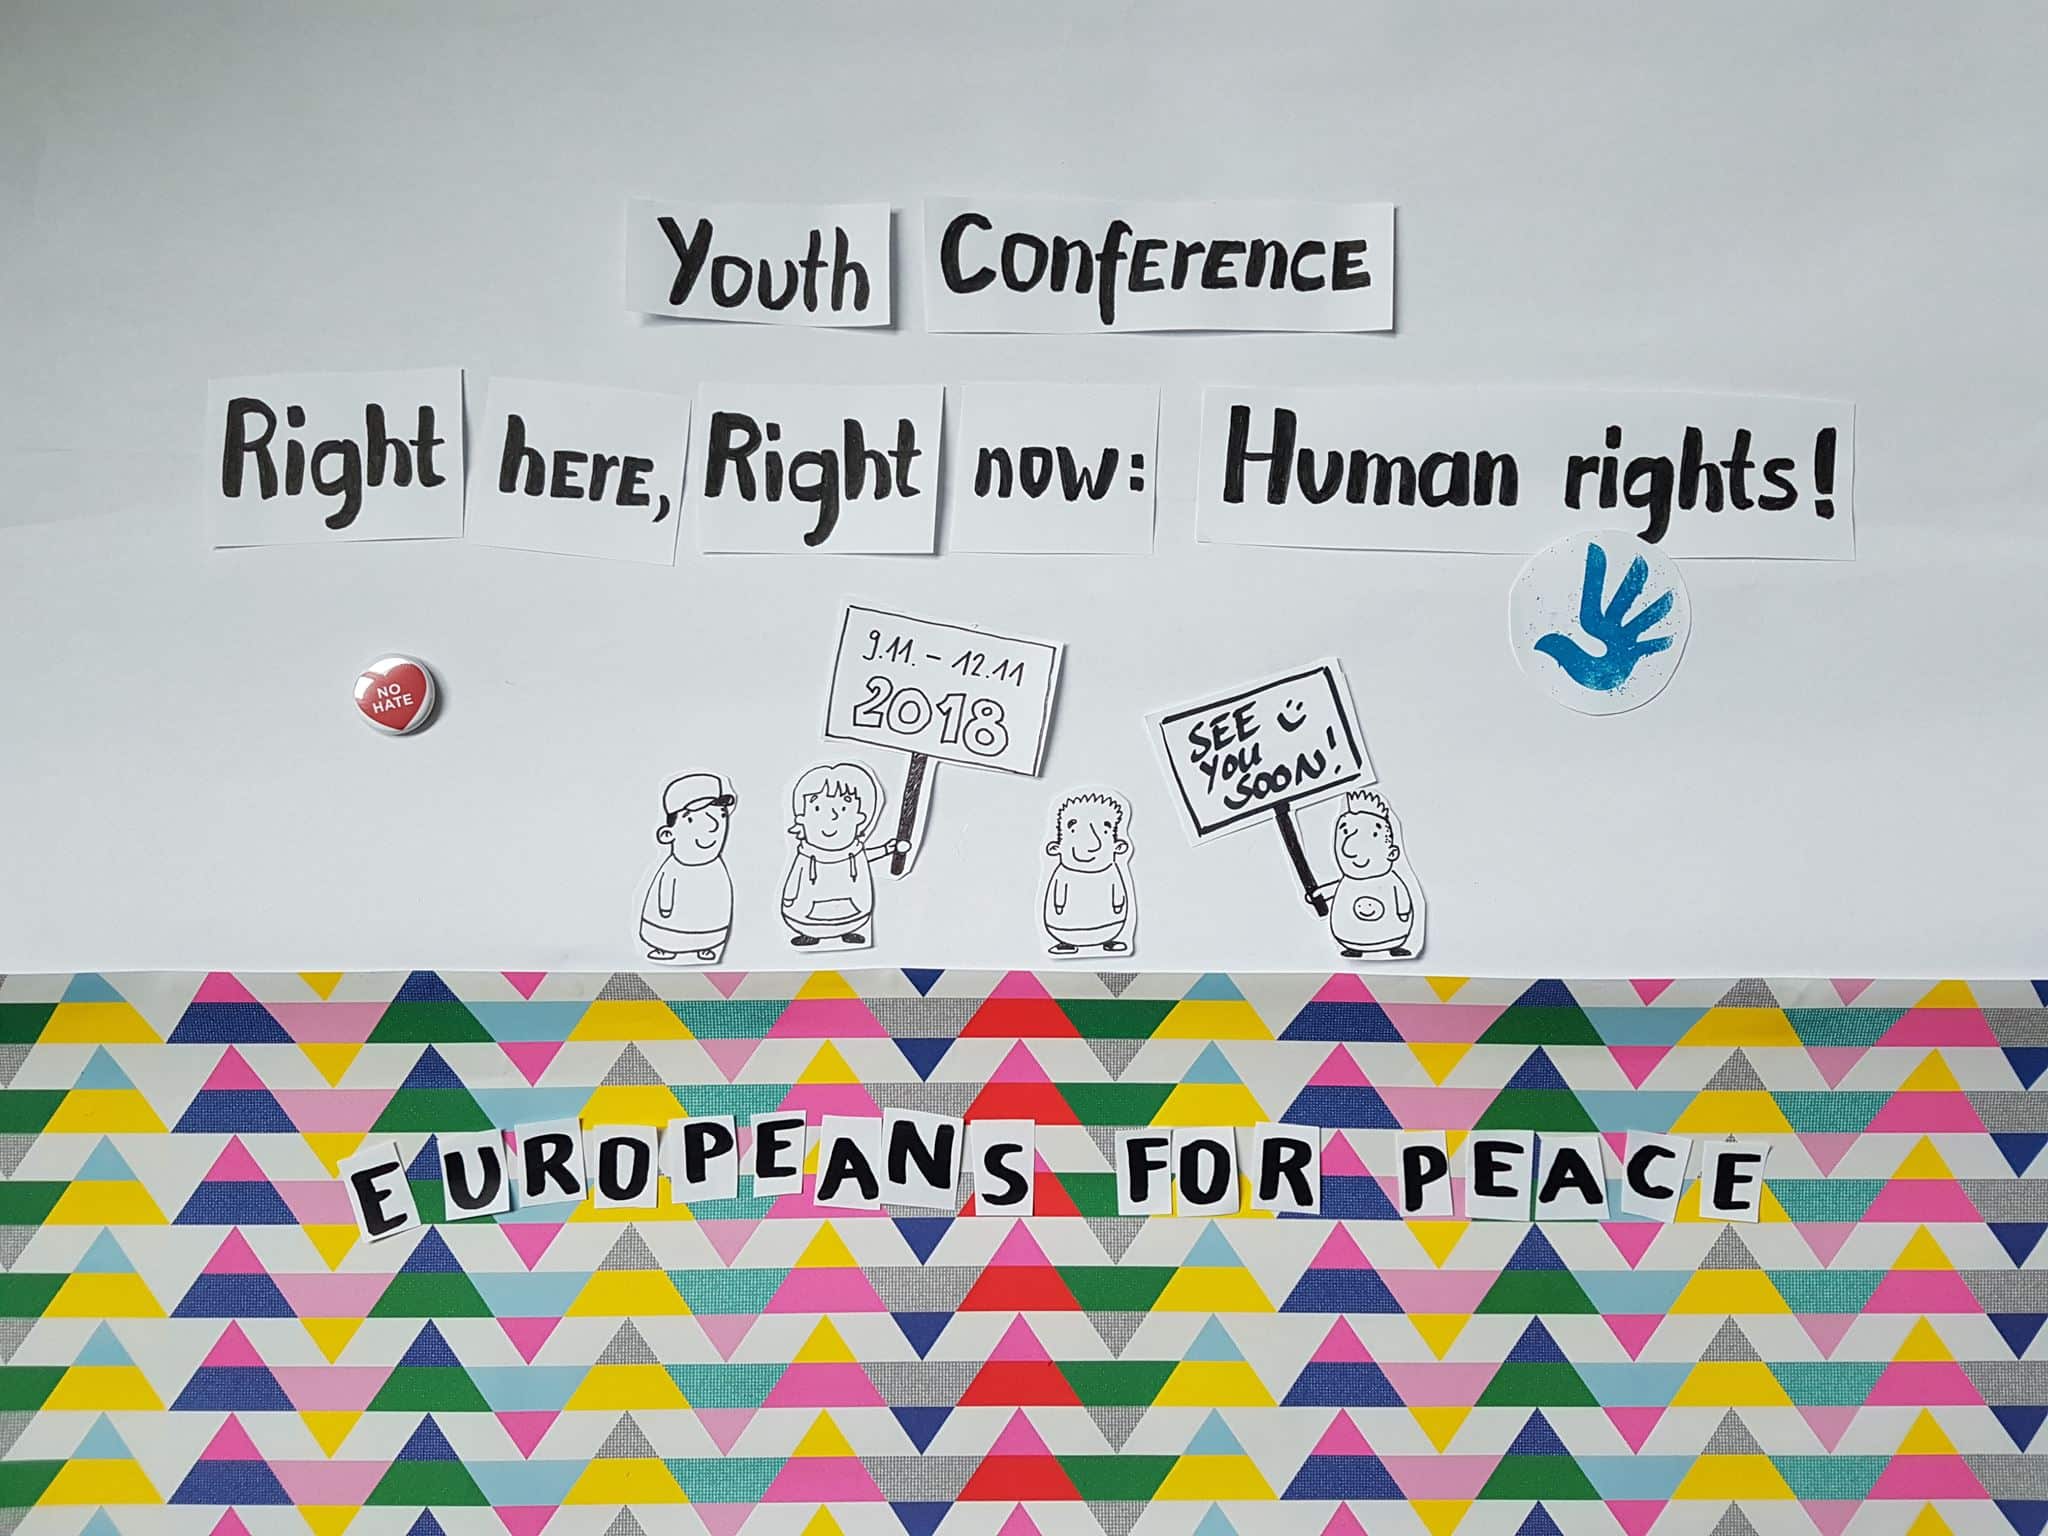 Youth Conference
Right here, Right now: Human rights!
NO
HATE
9.11. - 12.11
2018
SEE
YOU
SOON!
EUROPEANS FOR PEACE